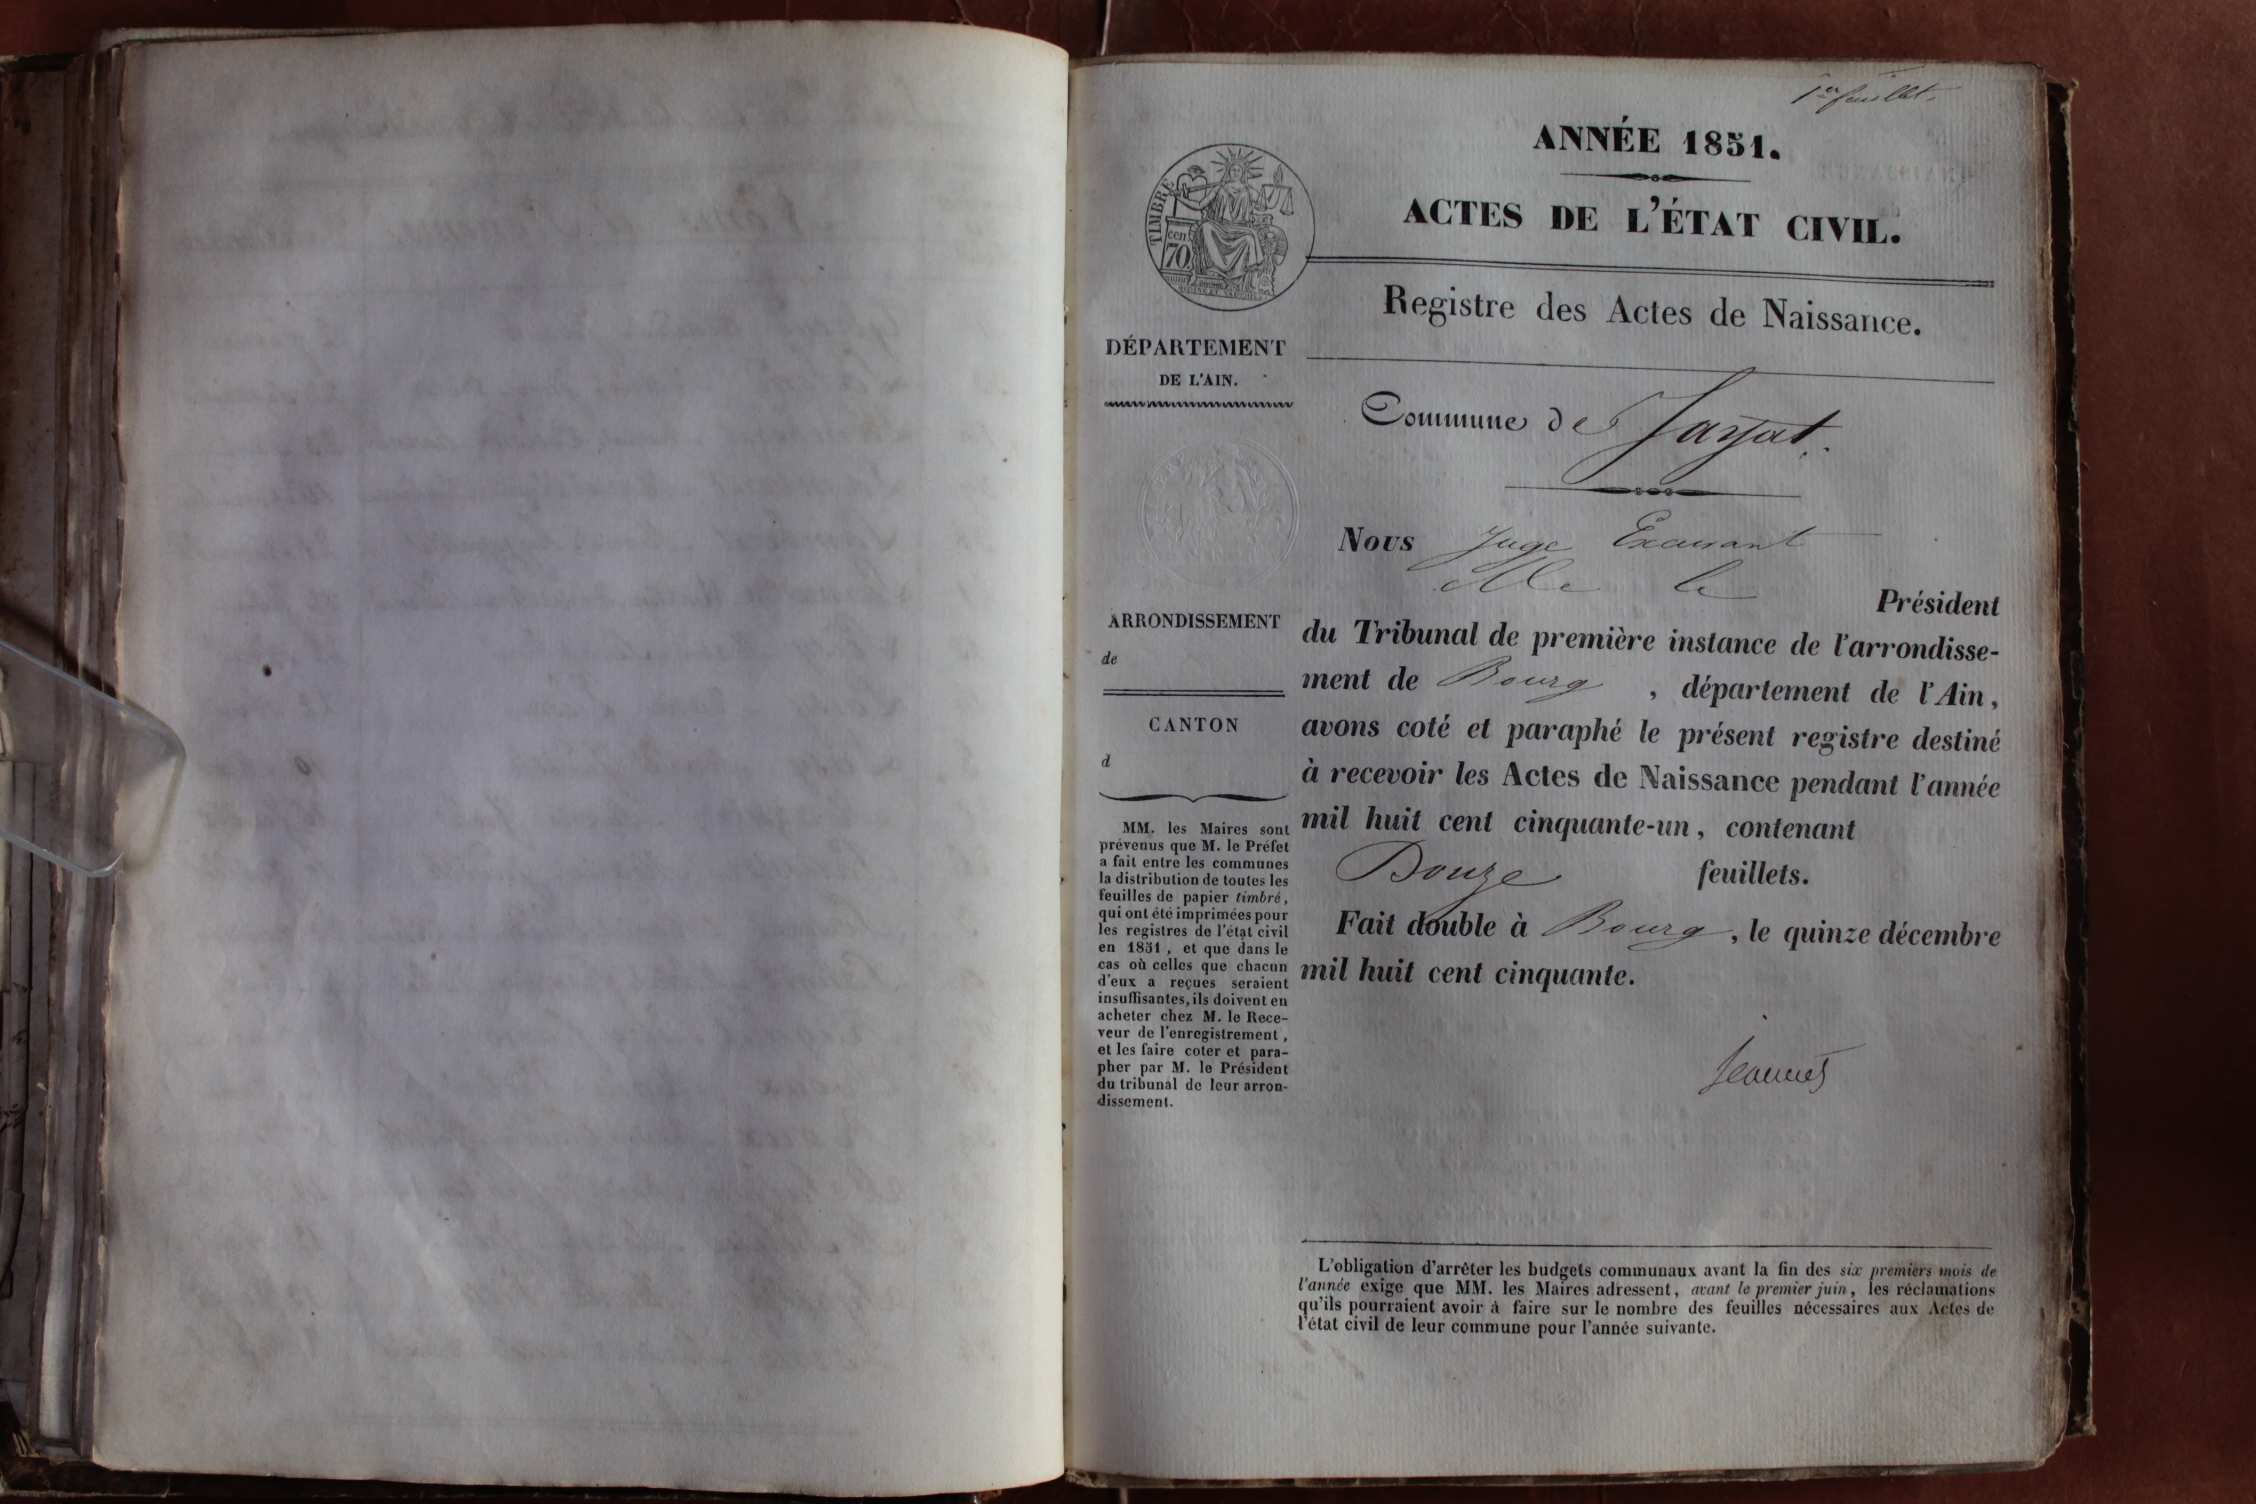 1er feuillet.
ANNÉE 1851.
ACTES DE L'ÉTAT CIVIL.
TIMBRE
cen
70
Registre des Actes de Naissance.
DÉPARTEMENT
DE L'AIN.
Commune de Jayat.
Nous Juge Excusant
Mr le Président
du Tribunal de première instance de l'arrondisse-
ment de Bourg, département de l'Ain,
avons coté et paraphé le présent registre destiné
à recevoir les Actes de Naissance pendant l'année
mil huit cent cinquante-un, contenant
Douze feuillets.
Fait double à Bourg, le quinze décembre
mil huit cent cinquante.
ARRONDISSEMENT
de
CANTON
d
MM. les Maires sont
prévenus que M. le Préfet
a fait entre les communes
la distribution de toutes les
feuilles de papier timbré,
qui ont été imprimées pour
les registres de l'état civil
en 1851, et que dans le
cas où celles que chacun
d'eux a reçues seraient
insuffisantes, ils doivent en
acheter chez M. le Rece-
veur de l'enregistrement,
et les faire coter et para-
pher par M. le Président
du tribunal de leur arron-
dissement.
L'obligation d'arrêter les budgets communaux avant la fin des six premiers mois de
l'année exige que MM. les Maires adressent, avant le premier juin, les réclamations
qu'ils pourraient avoir à faire sur le nombre des feuilles nécessaires aux Actes de
l'état civil de leur commune pour l'année suivante.